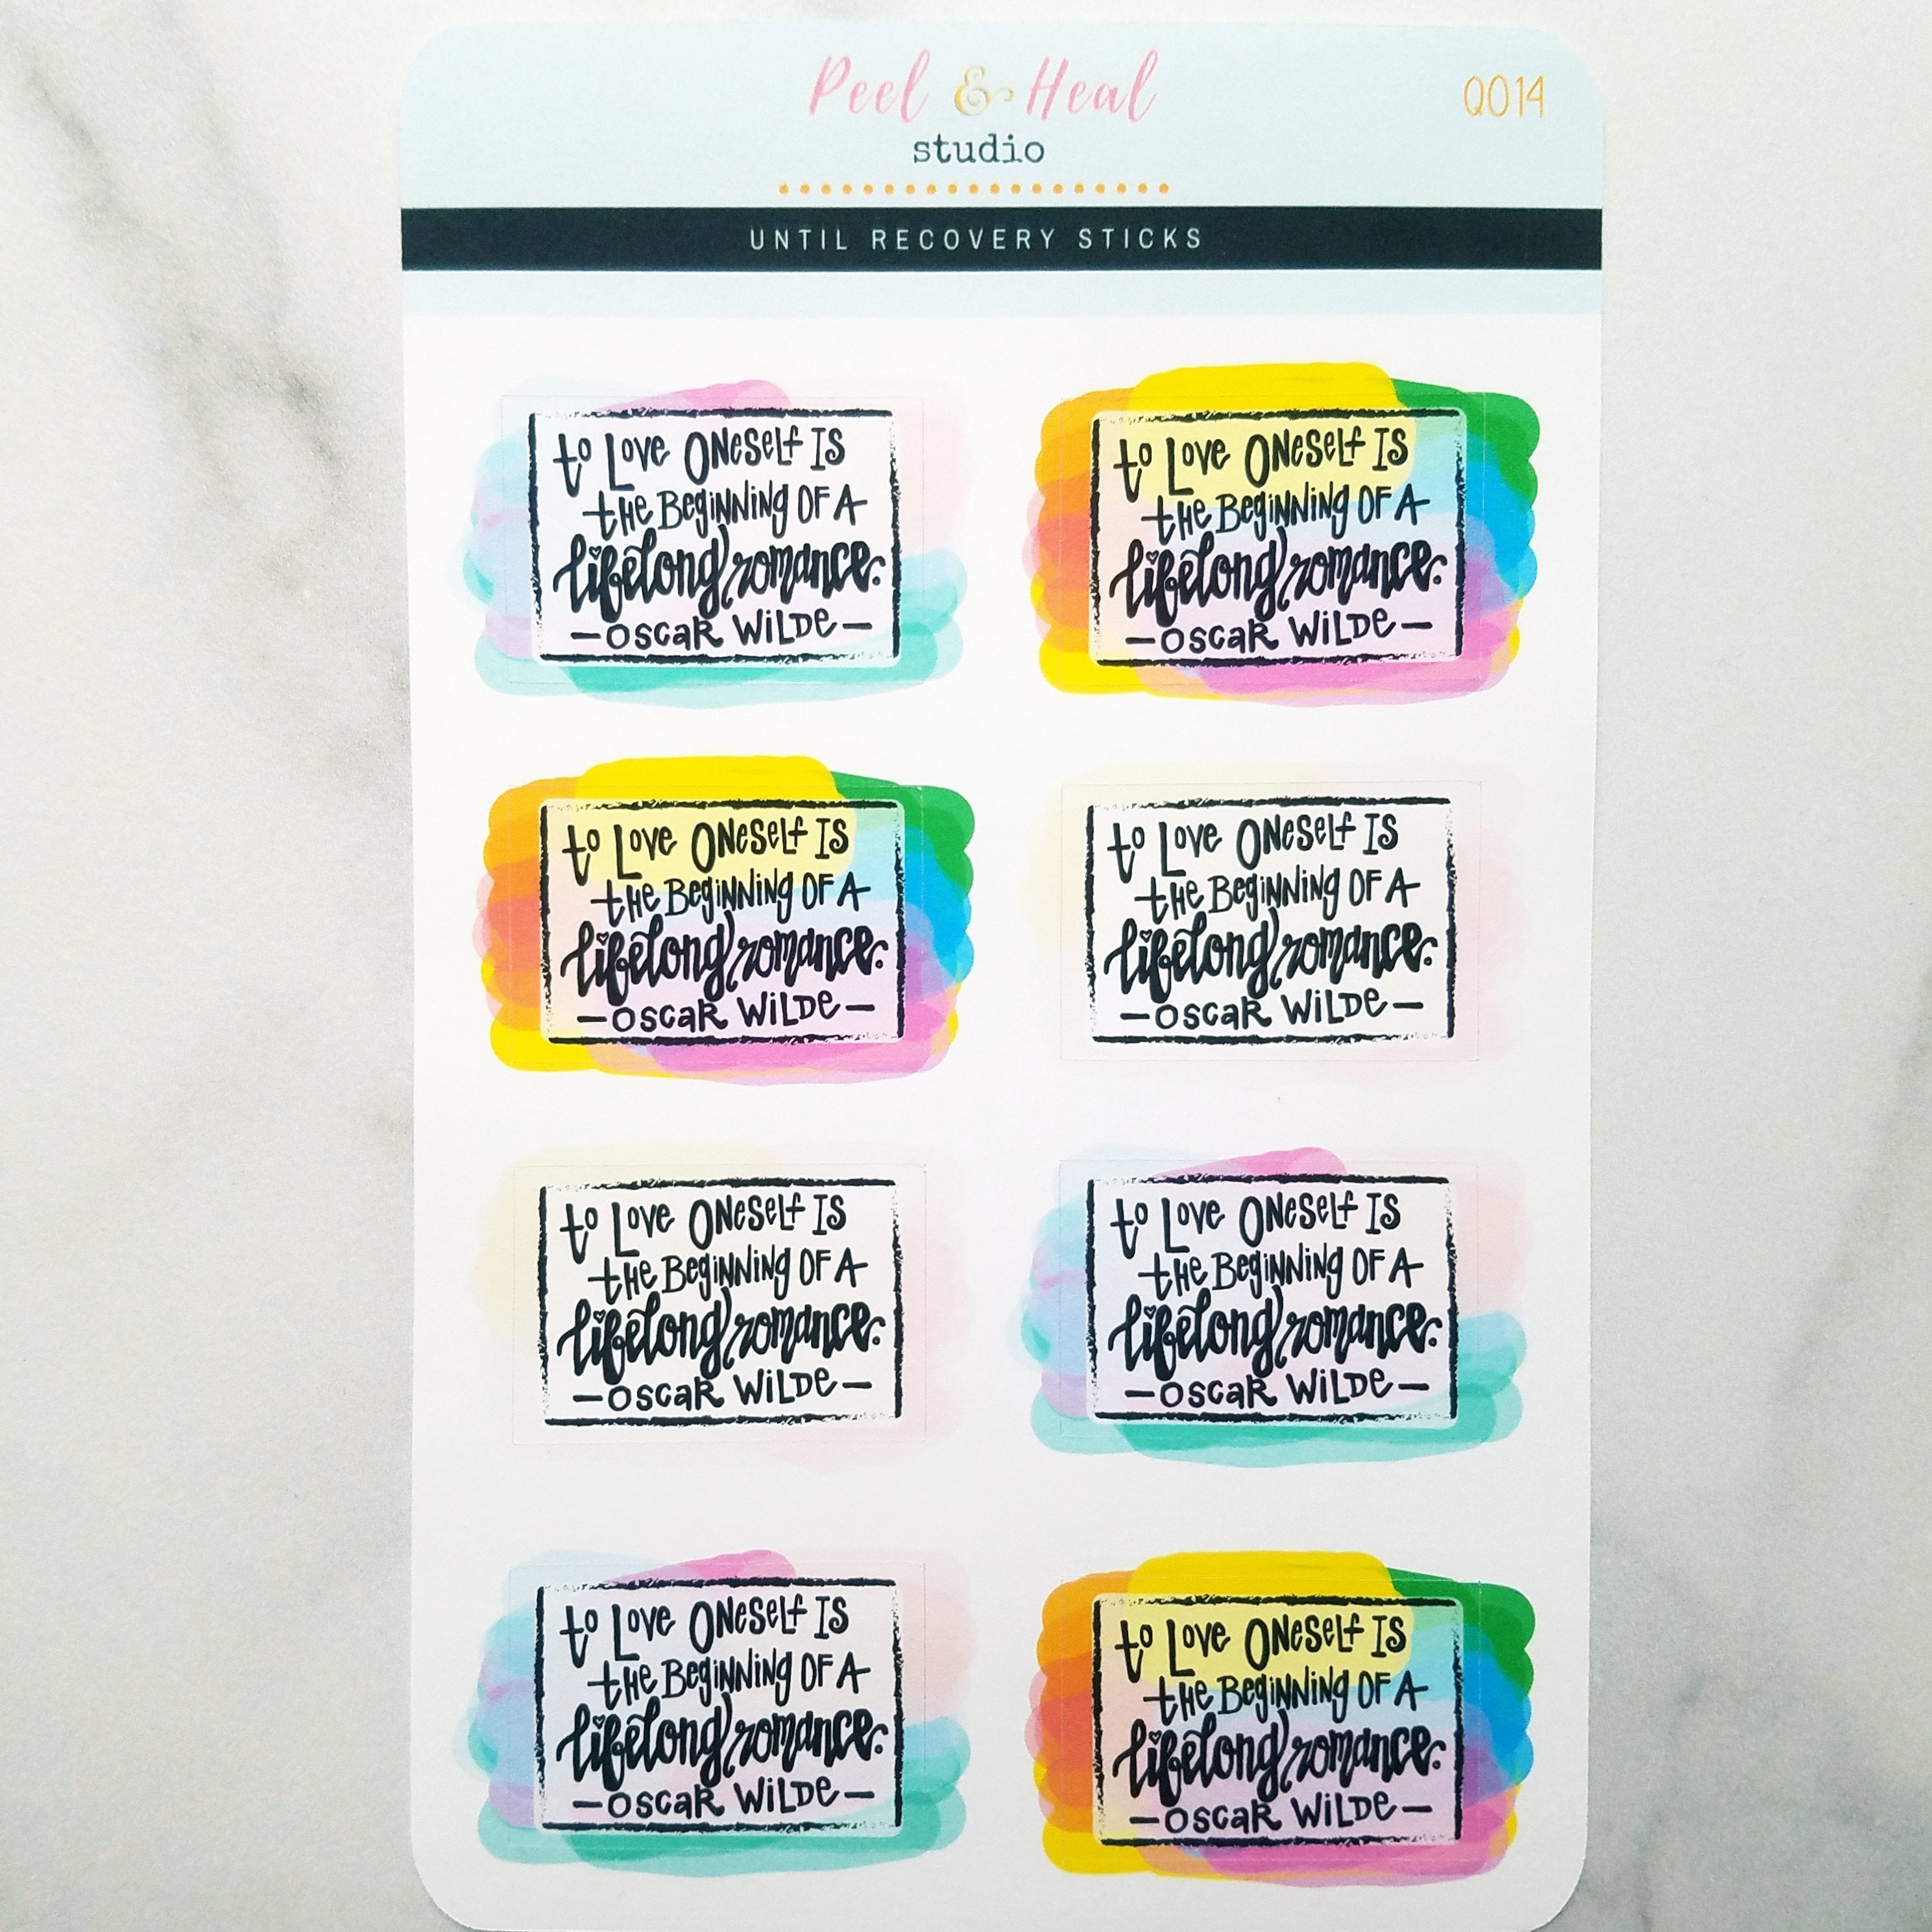 Peel & Heal
studio
Q014
UNTIL RECOVERY STICKS
to Love Oneself Is
the Beginning of a
lifelong romance.
—Oscar Wilde—
to Love Oneself Is
the Beginning of a
lifelong romance.
—Oscar Wilde—
to Love Oneself Is
the Beginning of a
lifelong romance.
—Oscar Wilde—
to Love Oneself Is
the Beginning of a
lifelong romance.
—Oscar Wilde—
to Love Oneself Is
the Beginning of a
lifelong romance.
—Oscar Wilde—
to Love Oneself Is
the Beginning of a
lifelong romance.
—Oscar Wilde—
to Love Oneself Is
the Beginning of a
lifelong romance.
—Oscar Wilde—
to Love Oneself Is
the Beginning of a
lifelong romance.
—Oscar Wilde—